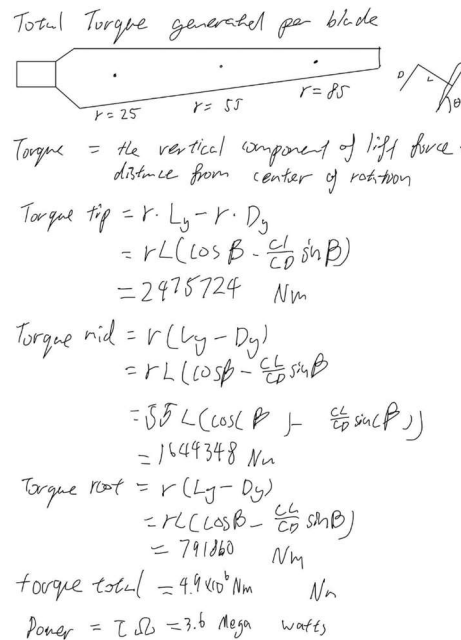 Total Torque generated per blade
r = 25 r = 55 r = 85 D L θ
Torque = the vertical component of lift force ·
distance from center of rotation
Torque tip = r · Ly − r · Dy
= rL(cos β − Cl/CD sin β)
= 2475724 Nm
Torque mid = r(Ly − Dy)
= rL(cosβ − CL/CD sinβ
= 55 L(cos(β) − CL/CD sin(β))
= 1644348 Nm
Torque root = r(Ly − Dy)
= rL(cosβ − CL/CD sinβ)
= 791860 Nm
torque total = 4.9 x10^6 Nm Nm
Power = τ Ω = 3.6 Mega watts